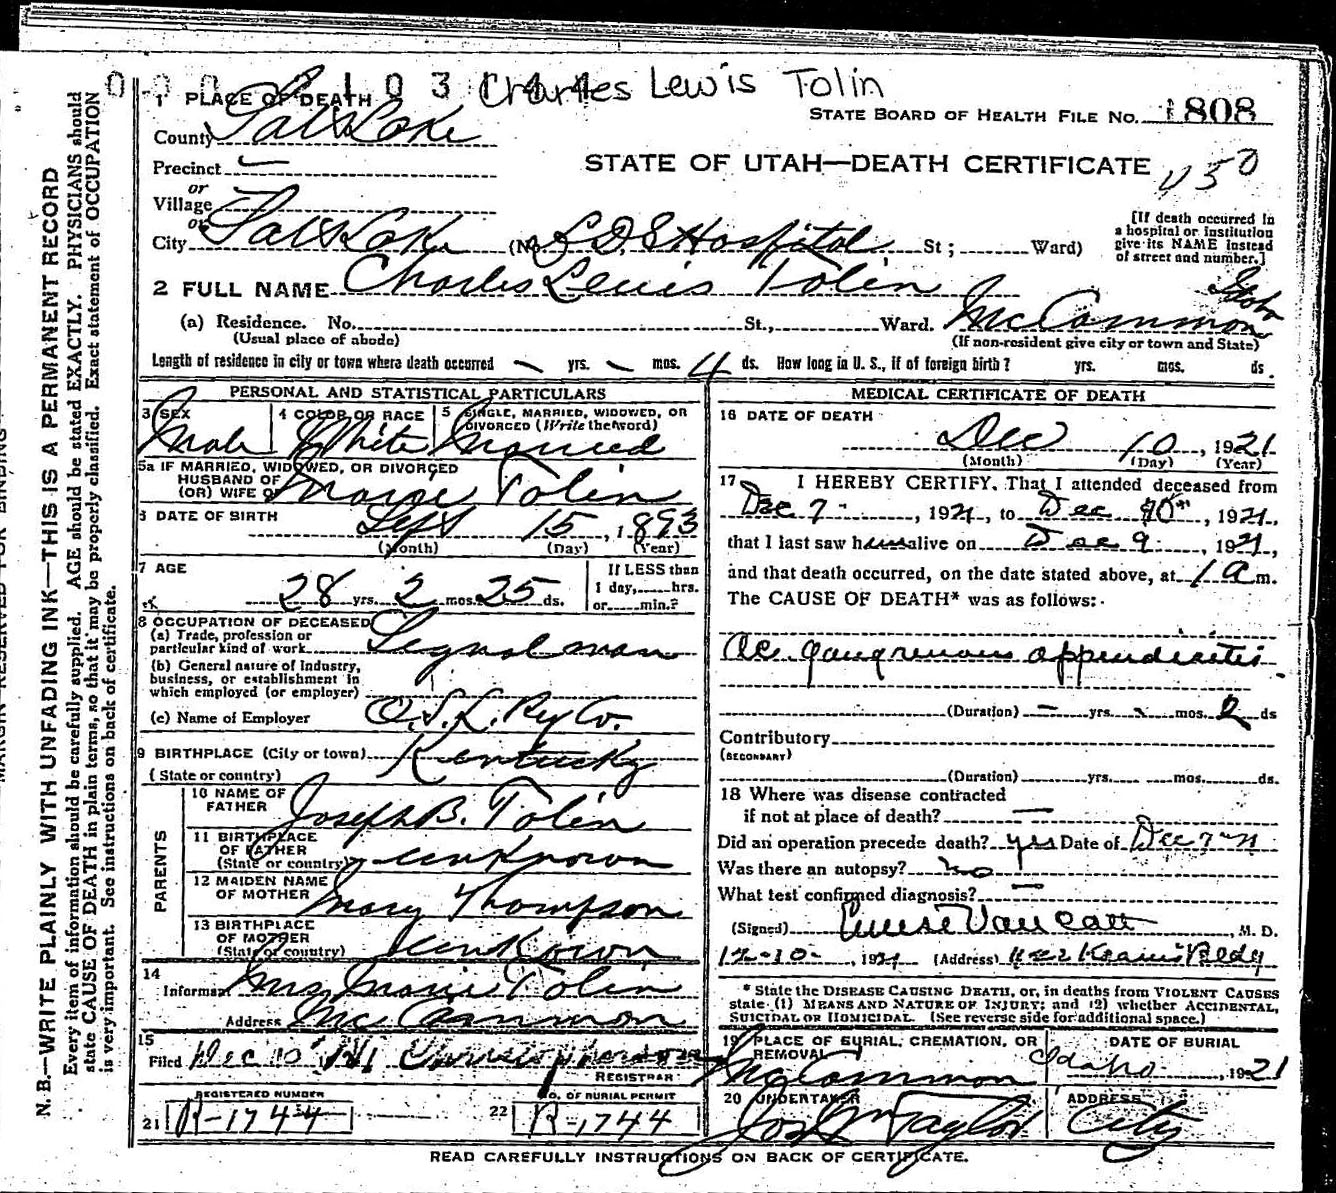 Charles Lewis Tolin
1 PLACE OF DEATH
STATE BOARD OF HEALTH FILE NO. 1808
County Salt Lake
STATE OF UTAH—DEATH CERTIFICATE
Precinct —
or
Village —
or
City Salt Lake (No. L.D.S Hospital, St; Ward)
[If death occurred in
a hospital or institution
give its NAME instead
of street and number.]
2 FULL NAME Charles Lewis Tolin
(a) Residence. No. St., Ward. McCammon Idaho
(Usual place of abode) (If non-resident give city or town and State)
Length of residence in city or town where death occurred — yrs. — mos. 4 ds. How long in U. S., if of foreign birth? yrs. mos. ds.
PERSONAL AND STATISTICAL PARTICULARS
3 SEX Male
4 COLOR OR RACE White
5 SINGLE, MARRIED, WIDOWED, OR
DIVORCED (Write the word) Married
5a IF MARRIED, WIDOWED, OR DIVORCED
HUSBAND OF
(OR) WIFE OF Marie Tolin
6 DATE OF BIRTH Sept 15, 1893
(Month) (Day) (Year)
7 AGE 28 yrs. 2 mos. 25 ds.
If LESS than
1 day, hrs.
or min.?
8 OCCUPATION OF DECEASED
(a) Trade, profession or
particular kind of work Signal man
(b) General nature of Industry,
business, or establishment in
which employed (or employer)
(c) Name of Employer O.S.L. Ry Co.
9 BIRTHPLACE (City or town) Kentucky
(State or country)
PARENTS
10 NAME OF
FATHER Joseph B. Tolin
11 BIRTHPLACE
OF FATHER
(State or country) unknown
12 MAIDEN NAME
OF MOTHER Mary Thompson
13 BIRTHPLACE
OF MOTHER
(State or country) unknown
14
Informant Mrs Marie Tolin
Address McCammon
15
Filed Dec 10 21
REGISTRAR
REGISTERED NUMBER
21 R-1744
NO. OF BURIAL PERMIT
22 R-1744
MEDICAL CERTIFICATE OF DEATH
16 DATE OF DEATH
Dec 10, 1921
(Month) (Day) (Year)
17 I HEREBY CERTIFY, That I attended deceased from
Dec 7, 1921, to Dec 10th, 1921,
that I last saw him alive on Dec 9, 1921,
and that death occurred, on the date stated above, at 1 a m.
The CAUSE OF DEATH* was as follows:
Ac. gangrenous appendicitis
(Duration) — yrs. — mos. 2 ds
Contributory
(SECONDARY)
(Duration) yrs. mos. ds.
18 Where was disease contracted
if not at place of death? —
Did an operation precede death? yes Date of Dec 7-21
Was there an autopsy? no
What test confirmed diagnosis? —
(Signed) , M. D.
12-10-, 1921 (Address) Kearns Bldg
* State the DISEASE CAUSING DEATH, or, in deaths from VIOLENT CAUSES
state (1) MEANS AND NATURE OF INJURY; and (2) whether ACCIDENTAL,
SUICIDAL OR HOMICIDAL. (See reverse side for additional space.)
19 PLACE OF BURIAL, CREMATION, OR
REMOVAL
McCammon Idaho
DATE OF BURIAL
, 1921
20 UNDERTAKER
Jos Wm Taylor
ADDRESS
City
READ CAREFULLY INSTRUCTIONS ON BACK OF CERTIFICATE.
MARGIN RESERVED FOR BINDING
N. B.—WRITE PLAINLY WITH UNFADING INK—THIS IS A PERMANENT RECORD
Every item of information should be carefully supplied. AGE should be stated EXACTLY. PHYSICIANS should
state CAUSE OF DEATH in plain terms, so that it may be properly classified. Exact statement of OCCUPATION
is very important. See instructions on back of certificate.